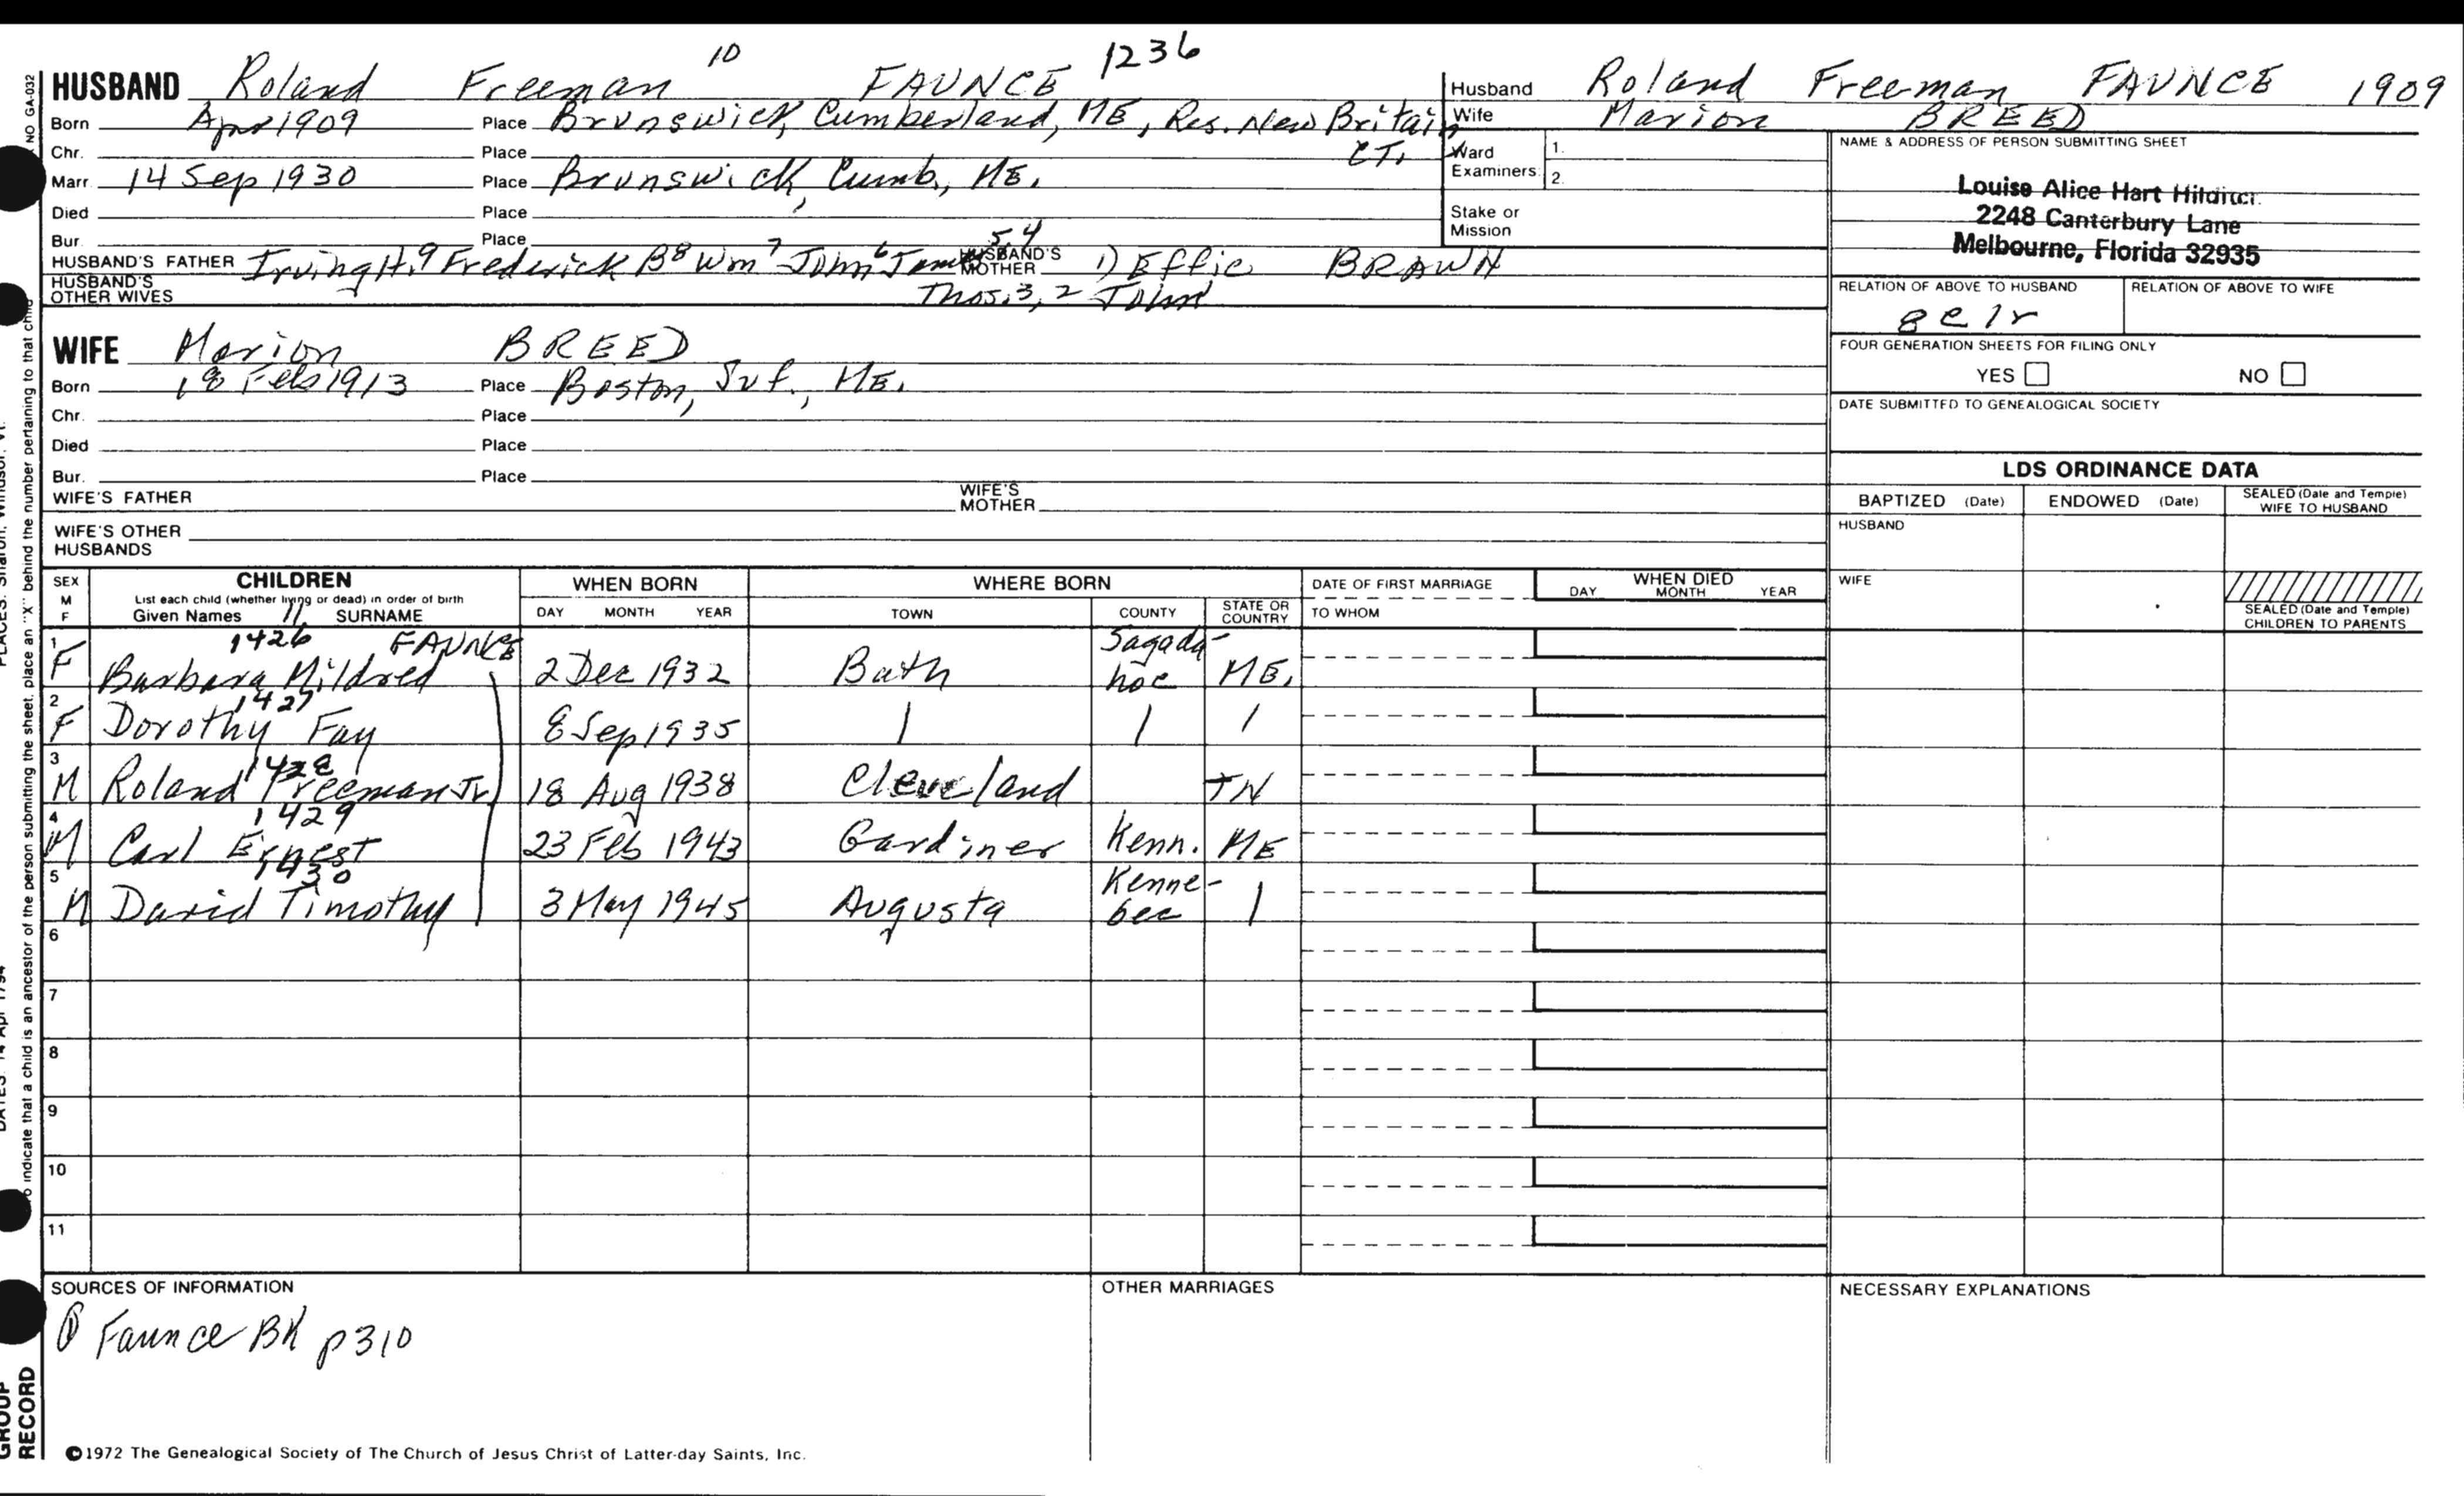 HUSBAND Roland Freeman 10 FAUNCE 1236
Born Apr 1909 Place Brunswick, Cumberland, ME, Res. New Britain CT,
Chr. Place
Marr. 14 Sep 1930 Place Brunswick, Cumb., ME.
Died Place
Bur. Place
HUSBAND'S FATHER Irving H.9 Frederick B8 Wm7 John6 James 5,4 HUSBAND'S MOTHER 1) Effie BRAWN
HUSBAND'S OTHER WIVES Thos. 3, 2 John
WIFE Marion BREED
Born 18 Feb 1913 Place Boston, Suf., ME.
Chr. Place
Died Place
Bur. Place
WIFE'S FATHER WIFE'S MOTHER
WIFE'S OTHER HUSBANDS
Husband Roland Freeman FAUNCE 1909
Wife Marion BREED
Ward Examiners 1.
2.
Stake or Mission
NAME & ADDRESS OF PERSON SUBMITTING SHEET
Louise Alice Hart
2248 Canterbury Lane
Melbourne, Florida 32935
RELATION OF ABOVE TO HUSBAND RELATION OF ABOVE TO WIFE
8c1r
FOUR GENERATION SHEETS FOR FILING ONLY
YES NO
DATE SUBMITTED TO GENEALOGICAL SOCIETY
LDS ORDINANCE DATA
BAPTIZED (Date) ENDOWED (Date) SEALED (Date and Temple) WIFE TO HUSBAND
HUSBAND
WIFE
SEALED (Date and Temple) CHILDREN TO PARENTS
SEX M F CHILDREN WHEN BORN WHERE BORN DATE OF FIRST MARRIAGE WHEN DIED
List each child (whether living or dead) in order of birth
Given Names 11 SURNAME DAY MONTH YEAR TOWN COUNTY STATE OR COUNTRY TO WHOM DAY MONTH YEAR
1 F 1426 Barbara Mildred FAUNCE 2 Dec 1932 Bath Sagada-hoc ME,
2 F 1427 Dorothy Fay 8 Sep 1935 | | |
3 M 1428 Roland Freeman Jr. 18 Aug 1938 Cleveland TN
4 M 1429 Carl Ernest 23 Feb 1943 Gardiner Kenn. ME
5 M 1430 David Timothy 3 May 1945 Augusta Kenne-bec |
6
7
8
9
10
11
SOURCES OF INFORMATION
① Faunce BK p310
OTHER MARRIAGES
NECESSARY EXPLANATIONS
©1972 The Genealogical Society of The Church of Jesus Christ of Latter-day Saints, Inc.
NO GA-032
to indicate that a child is an ancestor of the person submitting the sheet, place an "X" behind the number pertaining to that child
PLACES: Sharon, Windsor, Vt.
DATES: 14 Apr 1794
GROUP RECORD